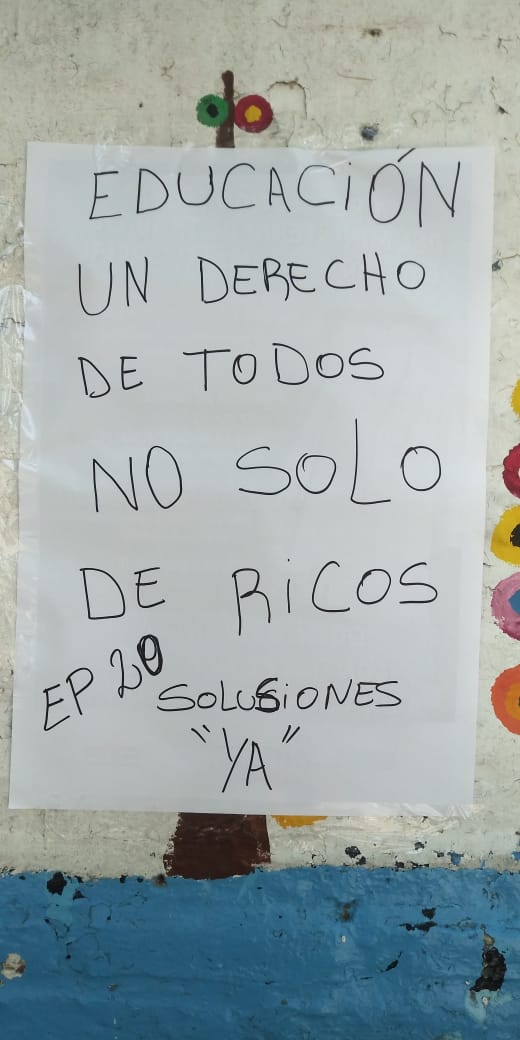 EDUCACIÓN
UN DERECHO
DE TODOS
NO SOLO
DE RICOS
EP 20
SOLUSIONES
"YA"